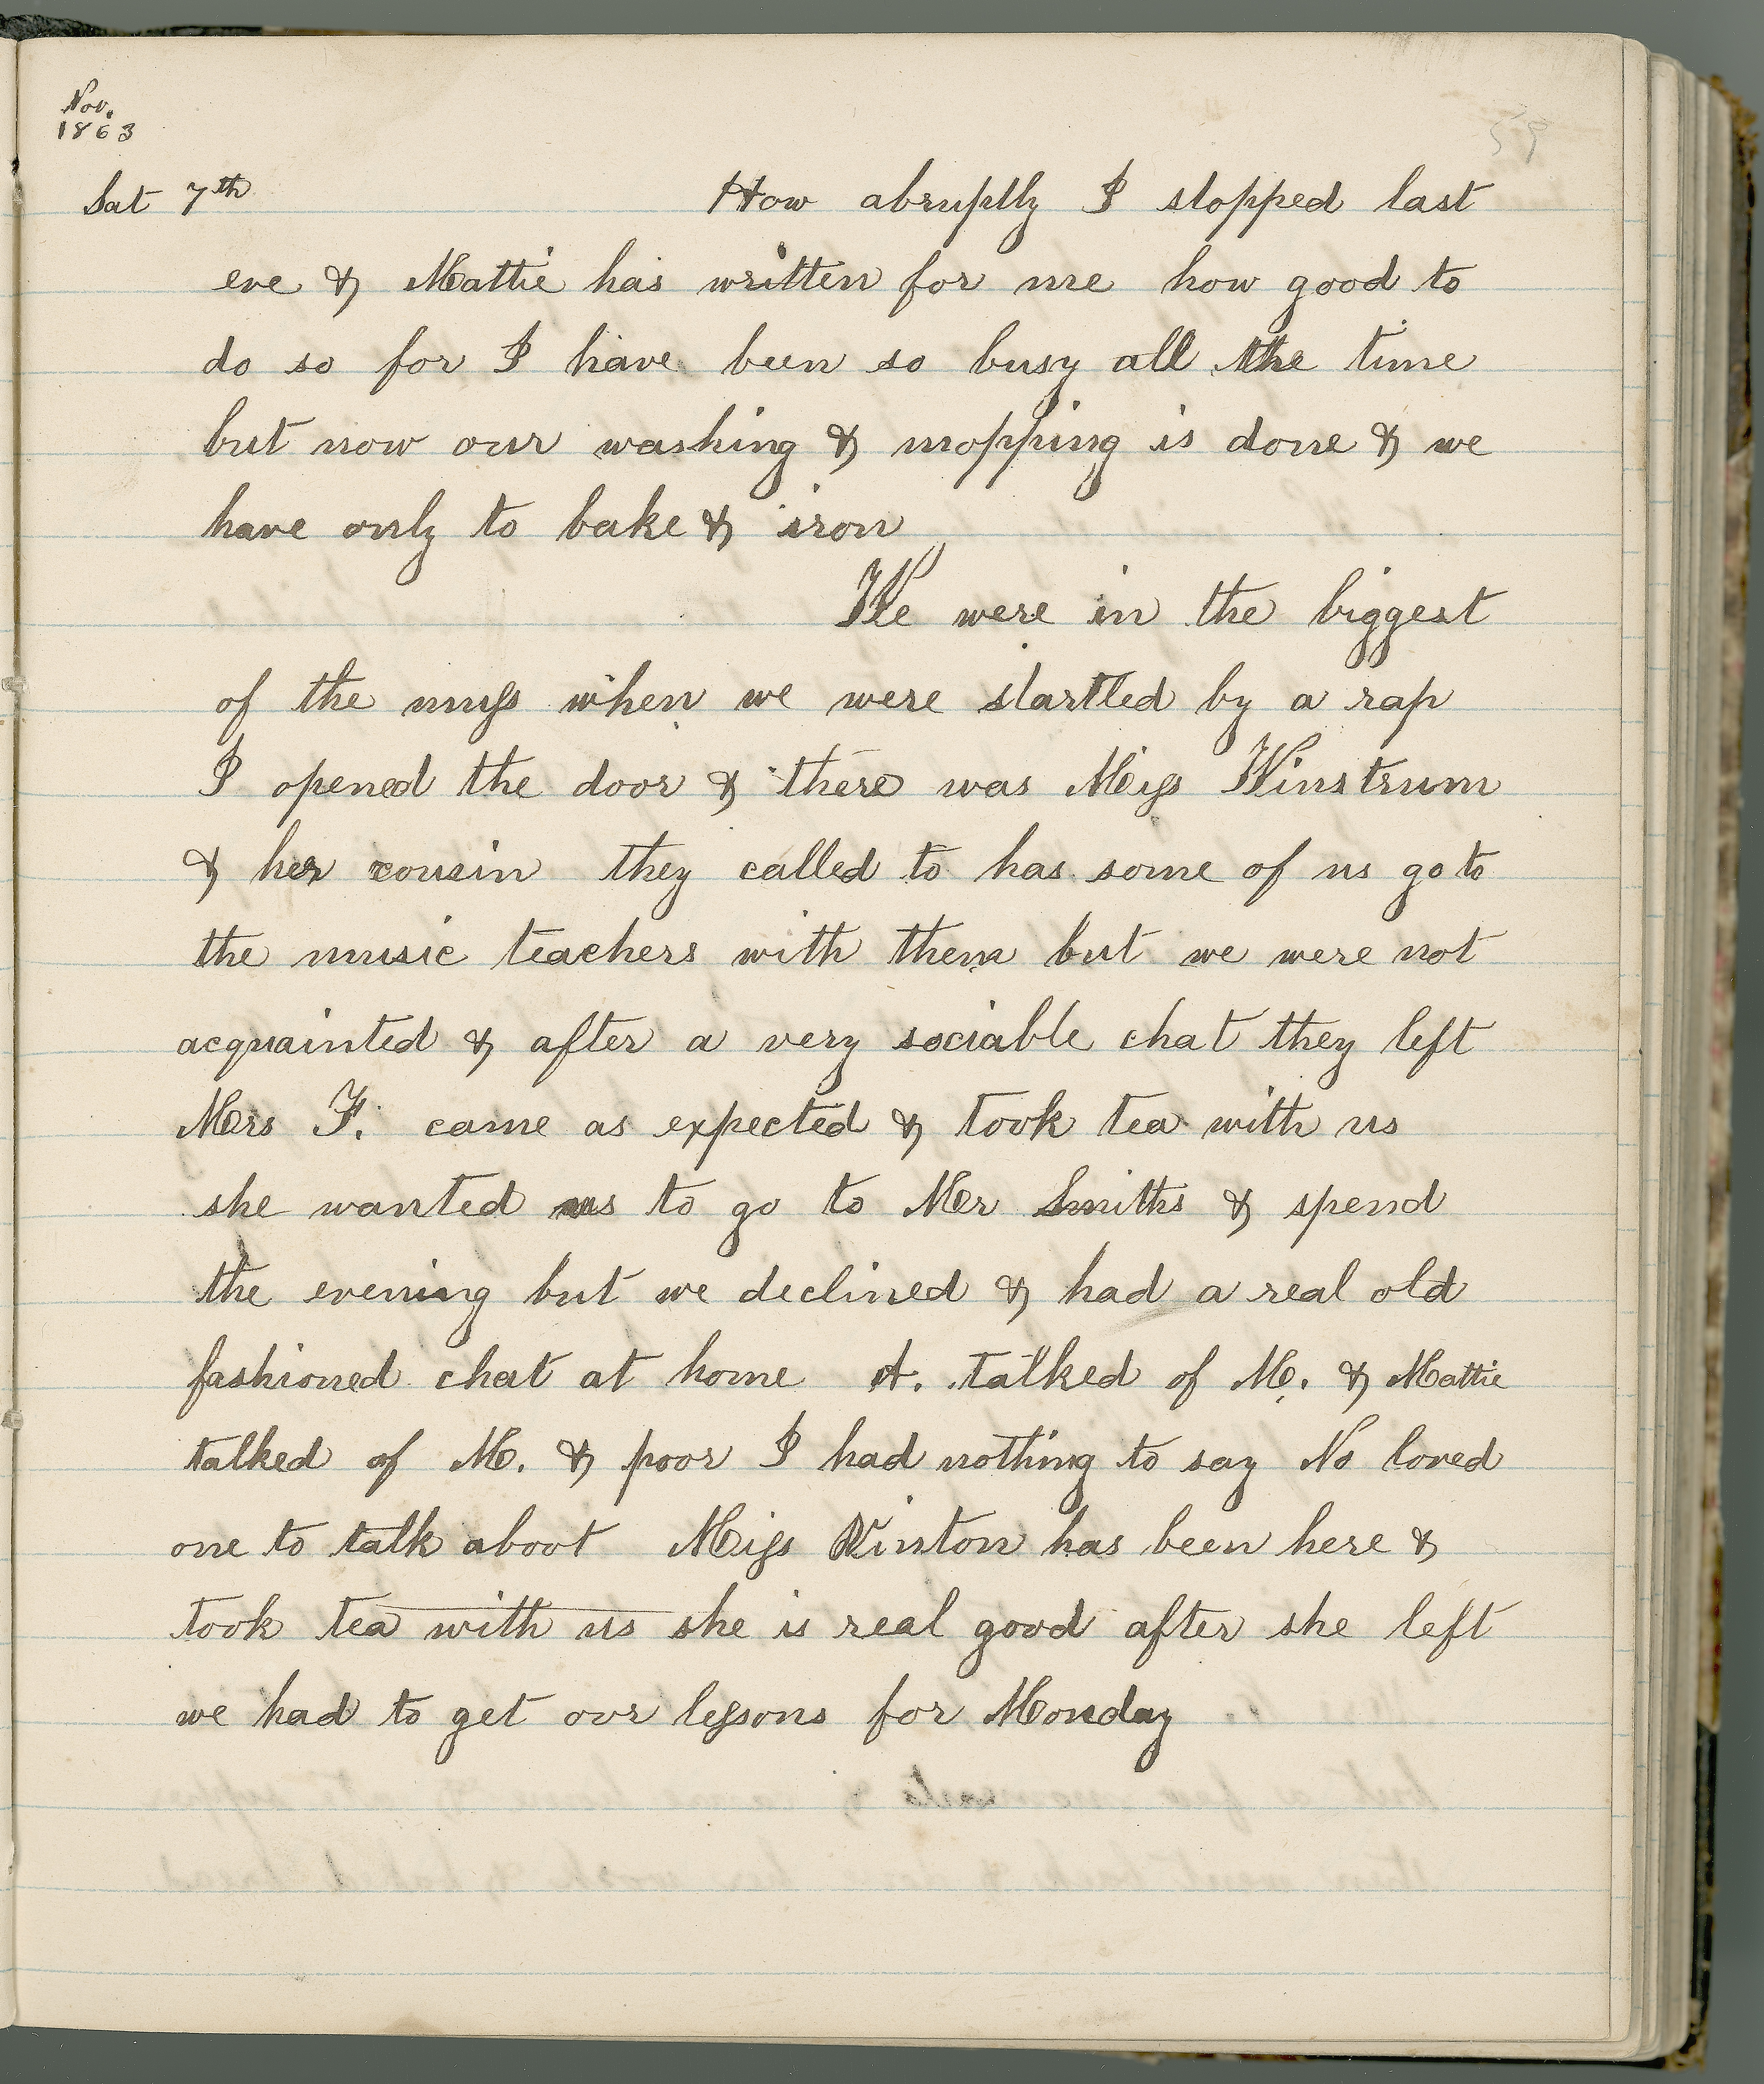 Nov.
1863
59
Sat 7th How abruptly I stopped last
eve & Mattie has written for me how good to
do so for I have been so busy all the time
but now our washing & mopping is done & we
have only to bake & iron
We were in the biggest
of the muss when we were startled by a rap
I opened the door & there was Miss Winstrum
& her cousin they called to has some of us go to
the music teachers with them but we were not
acquainted & after a very sociable chat they left
Mrs F. came as expected & took tea with us
she wanted us to go to Mr Smiths & spend
the evening but we declined & had a real old
fashioned chat at home A. talked of M. & Mattie
talked of M. & poor I had nothing to say No loved
one to talk about Miss Winton has been here &
took tea with us she is real good after she left
we had to get our lessons for Monday